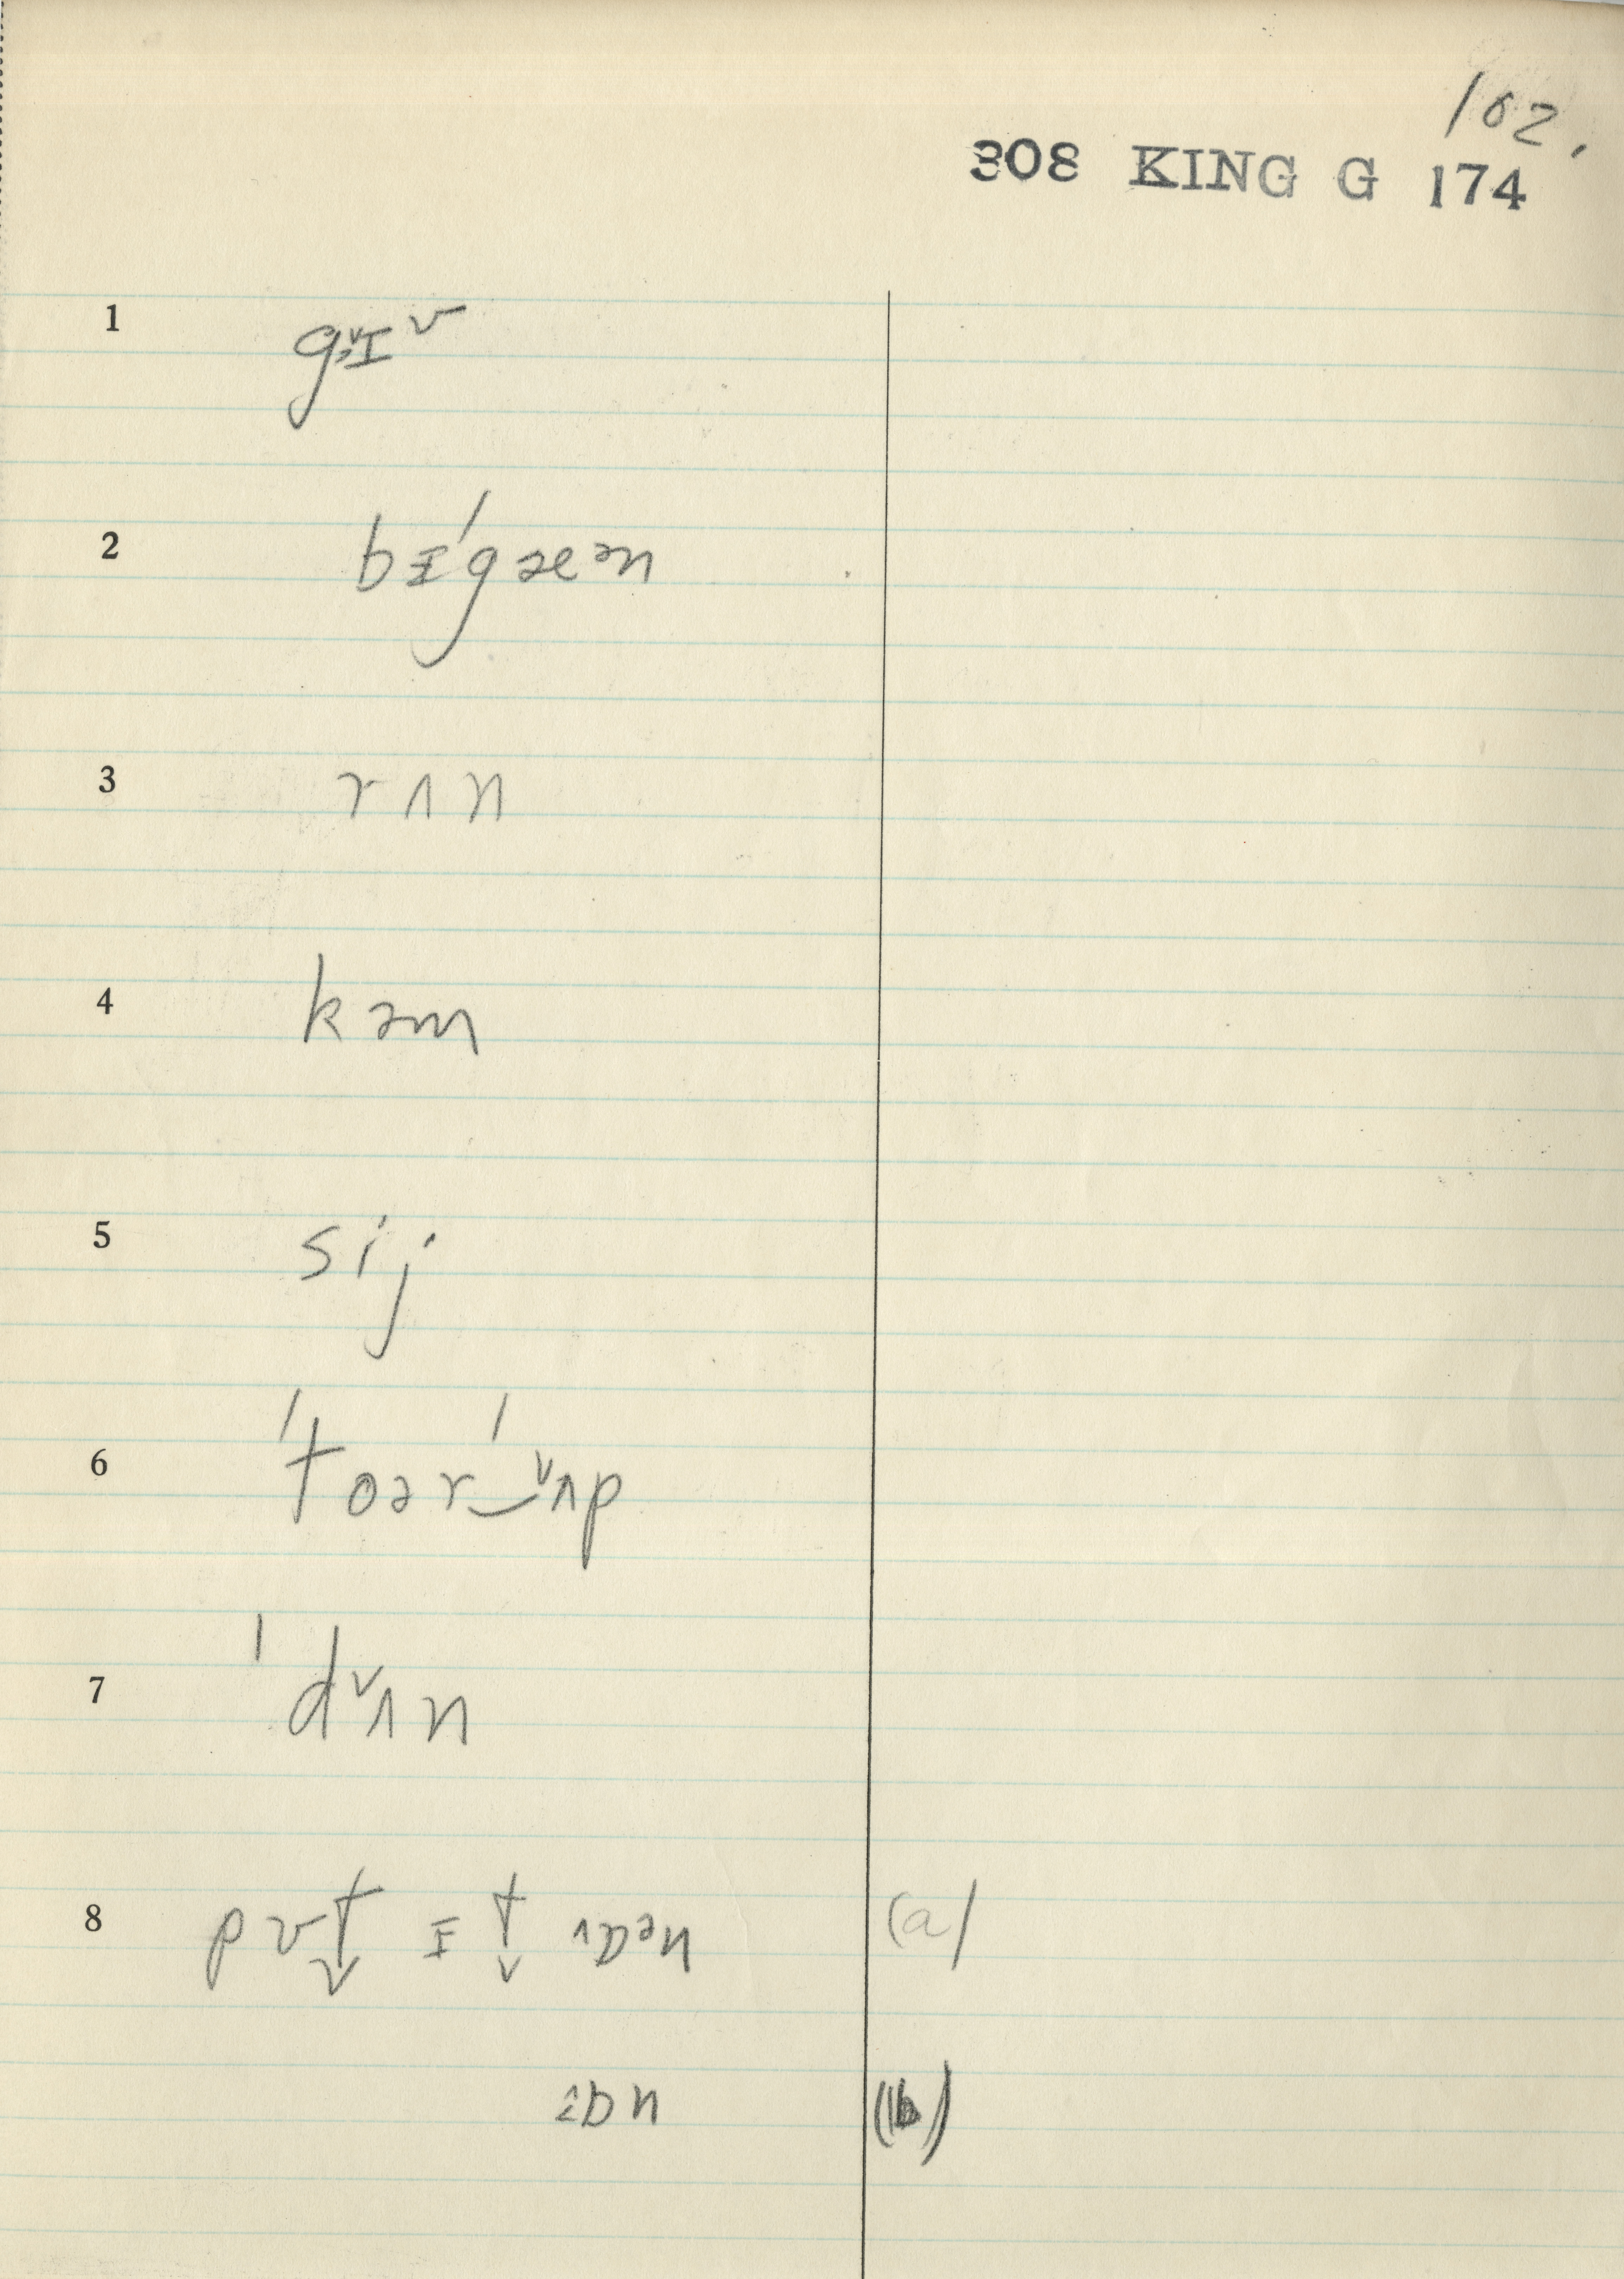 102.
308 KING G 174
1 gɪ̵ᵛ
2 bɪˈgæᵊn
3 rʌn
4 kəm
5 sij
6 ˈtoərˈ‿ʌ̌p
7 ˈdʌ̌n
8 pʊt̬ ɪ t̬ ᶺɒᵊn (a)
ɒn (b)